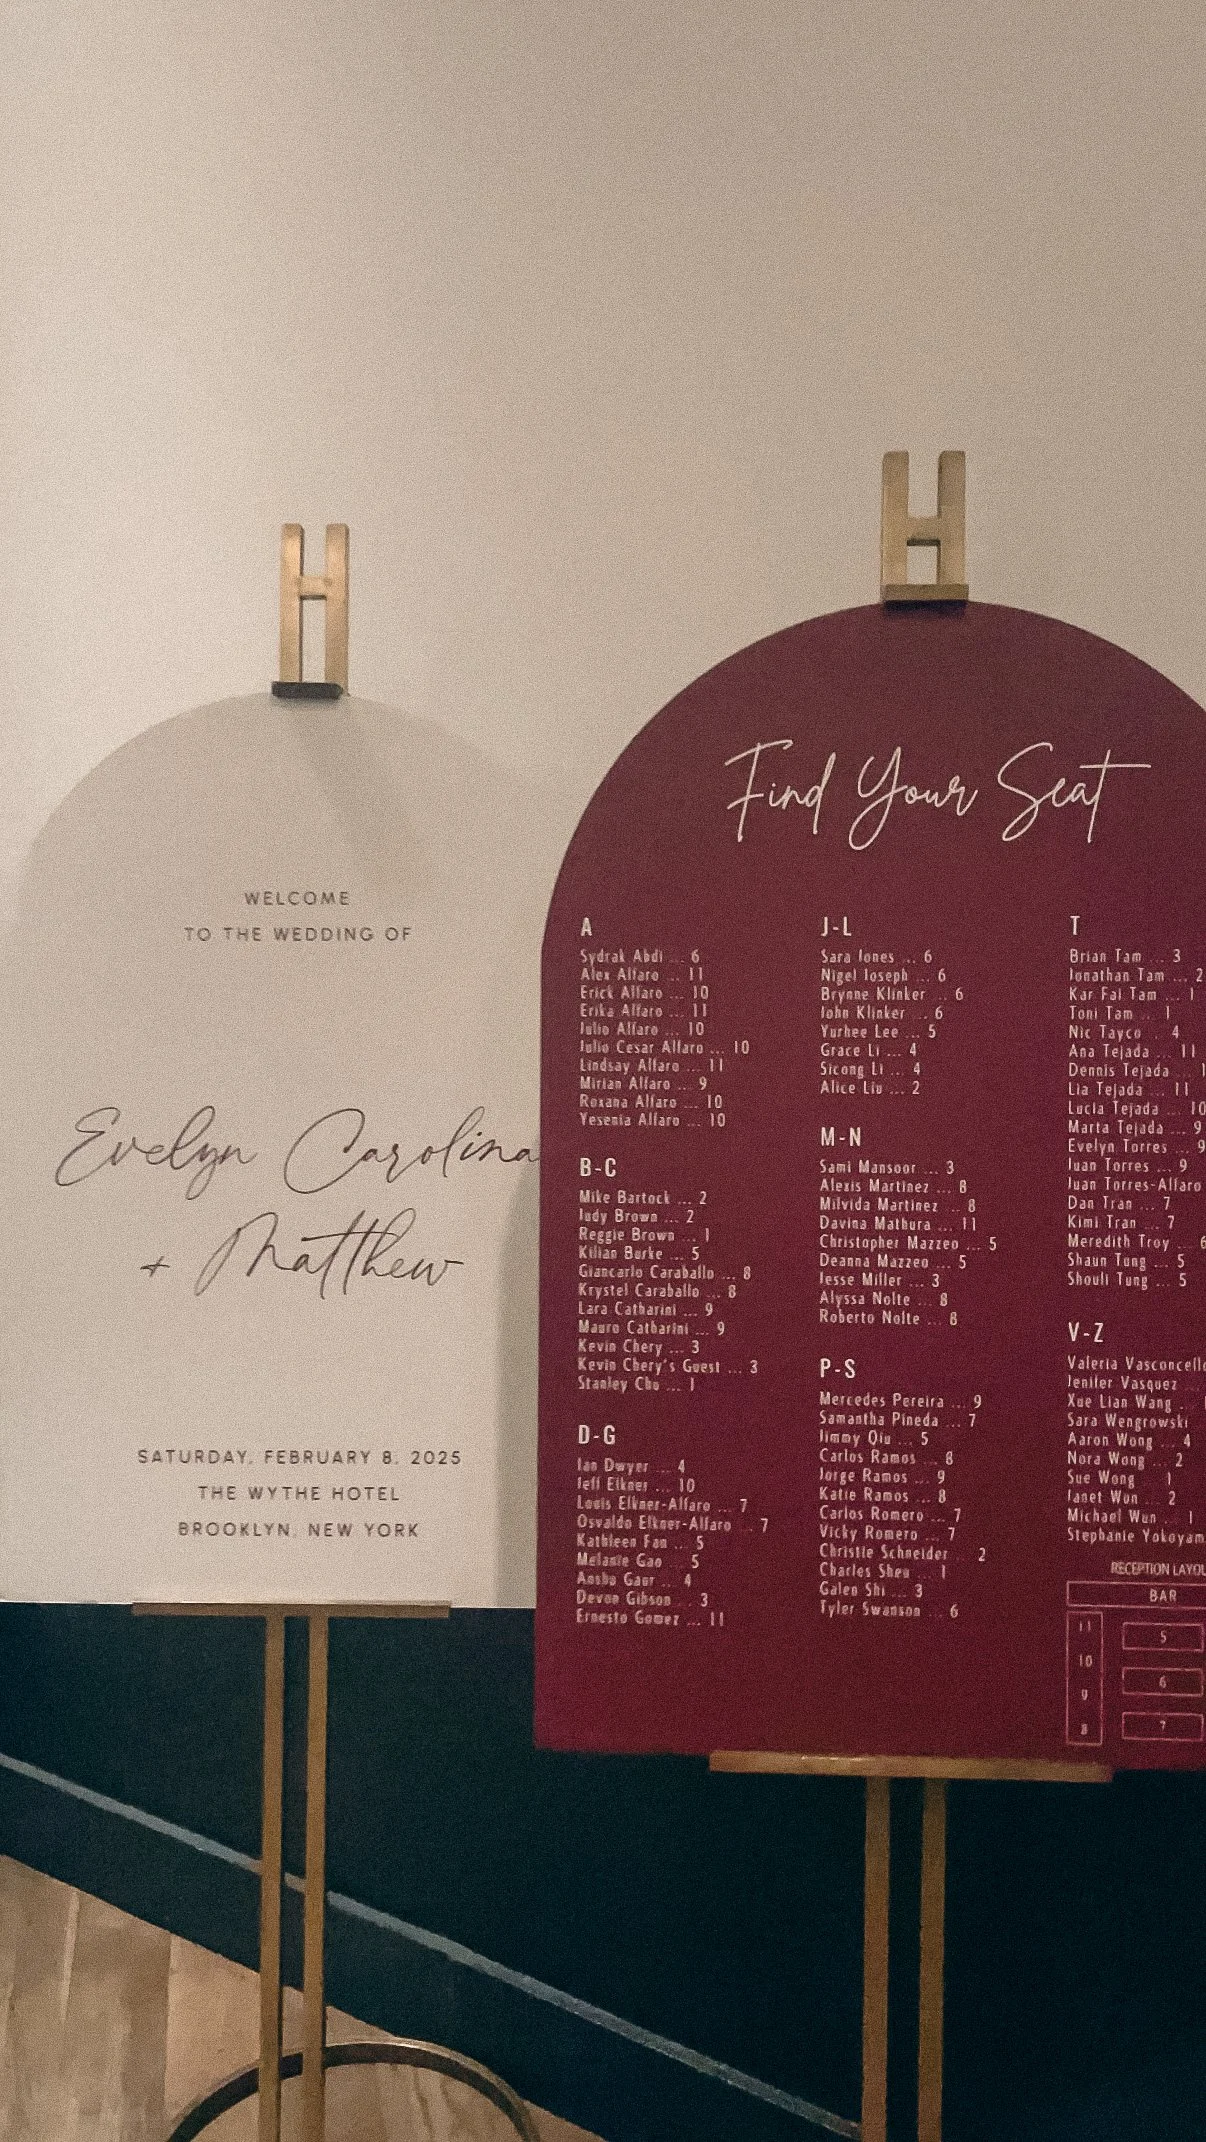 WELCOME
TO THE WEDDING OF
Evelyn Carolina
+ Matthew
SATURDAY, FEBRUARY 8, 2025
THE WYTHE HOTEL
BROOKLYN, NEW YORK
Find Your Seat
A
Sydrak Abdi ... 6
Alex Alfaro ... 11
Erick Alfaro ... 10
Erika Alfaro ... 11
Julio Alfaro ... 10
Julio Cesar Alfaro ... 10
Lindsay Alfaro ... 11
Mirian Alfaro ... 9
Roxana Alfaro ... 10
Yesenia Alfaro ... 10
B-C
Mike Bartock ... 2
Judy Brown ... 2
Reggie Brown ... 1
Kilian Burke ... 5
Giancarlo Caraballo ... 8
Krystel Caraballo ... 8
Lara Catharini ... 9
Mauro Catharini ... 9
Kevin Chery ... 3
Kevin Chery's Guest ... 3
Stanley Cho ... 1
D-G
Ian Dwyer ... 4
Jeff Elkner ... 10
Louis Elkner-Alfaro ... 7
Osvaldo Elkner-Alfaro ... 7
Kathleen Fan ... 5
Melanie Gao ... 5
Ansha Gaur ... 4
Devon Gibson ... 3
Ernesto Gomez ... 11
J-L
Sara Jones ... 6
Nigel Joseph ... 6
Brynne Klinker ... 6
John Klinker ... 6
Yurhee Lee ... 5
Grace Li ... 4
Sicong Li ... 4
Alice Liu ... 2
M-N
Sami Mansoor ... 3
Alexis Martinez ... 8
Milvida Martinez ... 8
Davina Mathura ... 11
Christopher Mazzeo ... 5
Deanna Mazzeo ... 5
Jesse Miller ... 3
Alyssa Nolte ... 8
Roberto Nolte ... 8
P-S
Mercedes Pereira ... 9
Samantha Pineda ... 7
Jimmy Qiu ... 5
Carlos Ramos ... 8
Jorge Ramos ... 9
Katie Ramos ... 8
Carlos Romero ... 7
Vicky Romero ... 7
Christie Schneider ... 2
Charles Sheu ... 1
Galen Shi ... 3
Tyler Swanson ... 6
T
Brian Tam ... 3
Jonathan Tam ... 2
Kar Fai Tam ... 1
Toni Tam ... 1
Nic Tayco ... 4
Ana Tejada ... 11
Dennis Tejada ...
Lia Tejada ... 11
Lucia Tejada ... 10
Marta Tejada ... 9
Evelyn Torres ... 9
Juan Torres ... 9
Juan Torres-Alfaro
Dan Tran ... 7
Kimi Tran ... 7
Meredith Troy ... 6
Shaun Tung ... 5
Shouli Tung ... 5
V-Z
Valeria
Jenifer Vasquez ...
Xue Lian Wang ...
Sara Wengrowski
Aaron Wong ... 4
Nora Wong ... 2
Sue Wong ... 1
Janet Wun ... 2
Michael Wun ... 1
Stephanie
RECEPTION
BAR
11
10
9
8
5
6
7